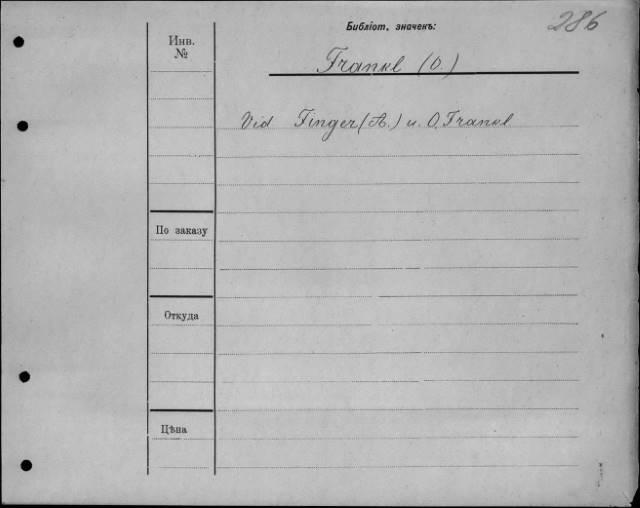 Библіот. значекъ:
286
Инв.
№
Frankl (O.)
Vid Finger (A.) u. O. Frankl
По заказу
Откуда
Цѣна